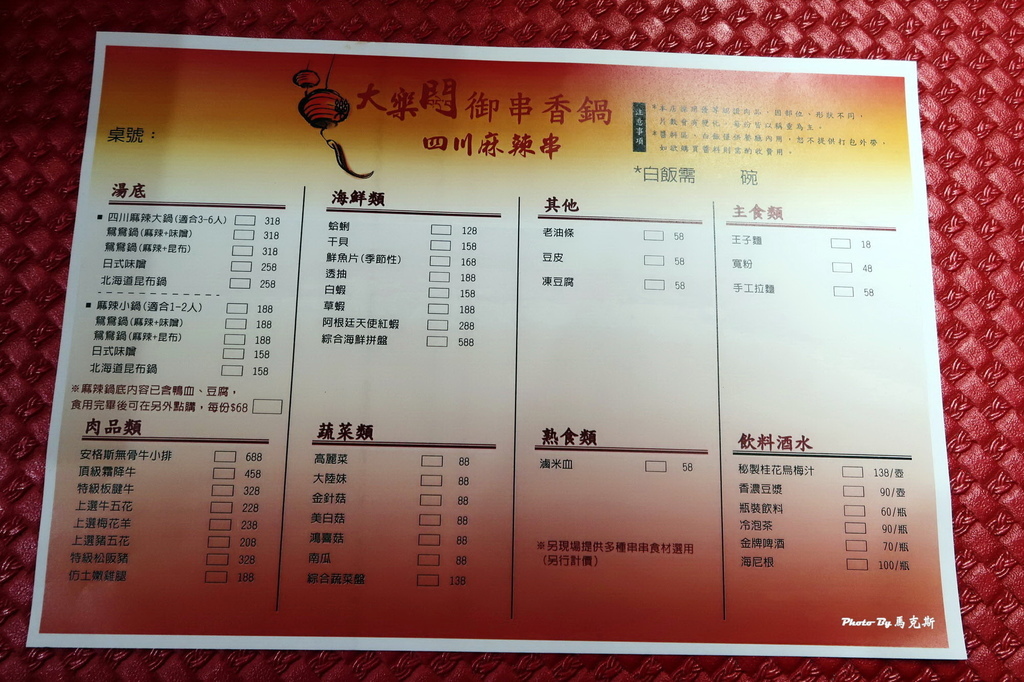 大樂悶御串香鍋
四川麻辣串
桌號：
注意事項
*白飯需 碗
湯底
■ 四川麻辣大鍋(適合3-6人) 318
鴛鴦鍋(麻辣+味噌) 318
鴛鴦鍋(麻辣+昆布) 318
日式味噌 258
北海道昆布鍋 258
■ 麻辣小鍋(適合1-2人) 188
鴛鴦鍋(麻辣+味噌) 188
鴛鴦鍋(麻辣+昆布) 188
日式味噌 158
北海道昆布鍋 158
※麻辣鍋底內容已含鴨血、豆腐，
食用完畢後可在另外點購，每份$68
海鮮類
蛤蜊 128
干貝 158
鮮魚片(季節性) 168
透抽 188
白蝦 158
草蝦 188
阿根廷天使紅蝦 288
綜合海鮮拼盤 588
其他
老油條 58
豆皮 58
凍豆腐 58
主食類
王子麵 18
寬粉 48
手工拉麵 58
肉品類
安格斯無骨牛小排 688
頂級霜降牛 458
特級板腱牛 328
上選牛五花 228
上選梅花羊 238
上選豬五花 208
特級松阪豬 328
仿土嫩雞腿 188
蔬菜類
高麗菜 88
大陸妹 88
金針菇 88
美白菇 88
鴻喜菇 88
南瓜 88
綜合蔬菜盤 138
熟食類
滷米血 58
※另現場提供多種串串食材選用
(另行計價)
飲料酒水
秘製桂花烏梅汁 138/壺
香濃豆漿 90/壺
瓶裝飲料 60/瓶
冷泡茶 90/瓶
金牌啤酒 70/瓶
海尼根 100/瓶
Photo By 馬克斯